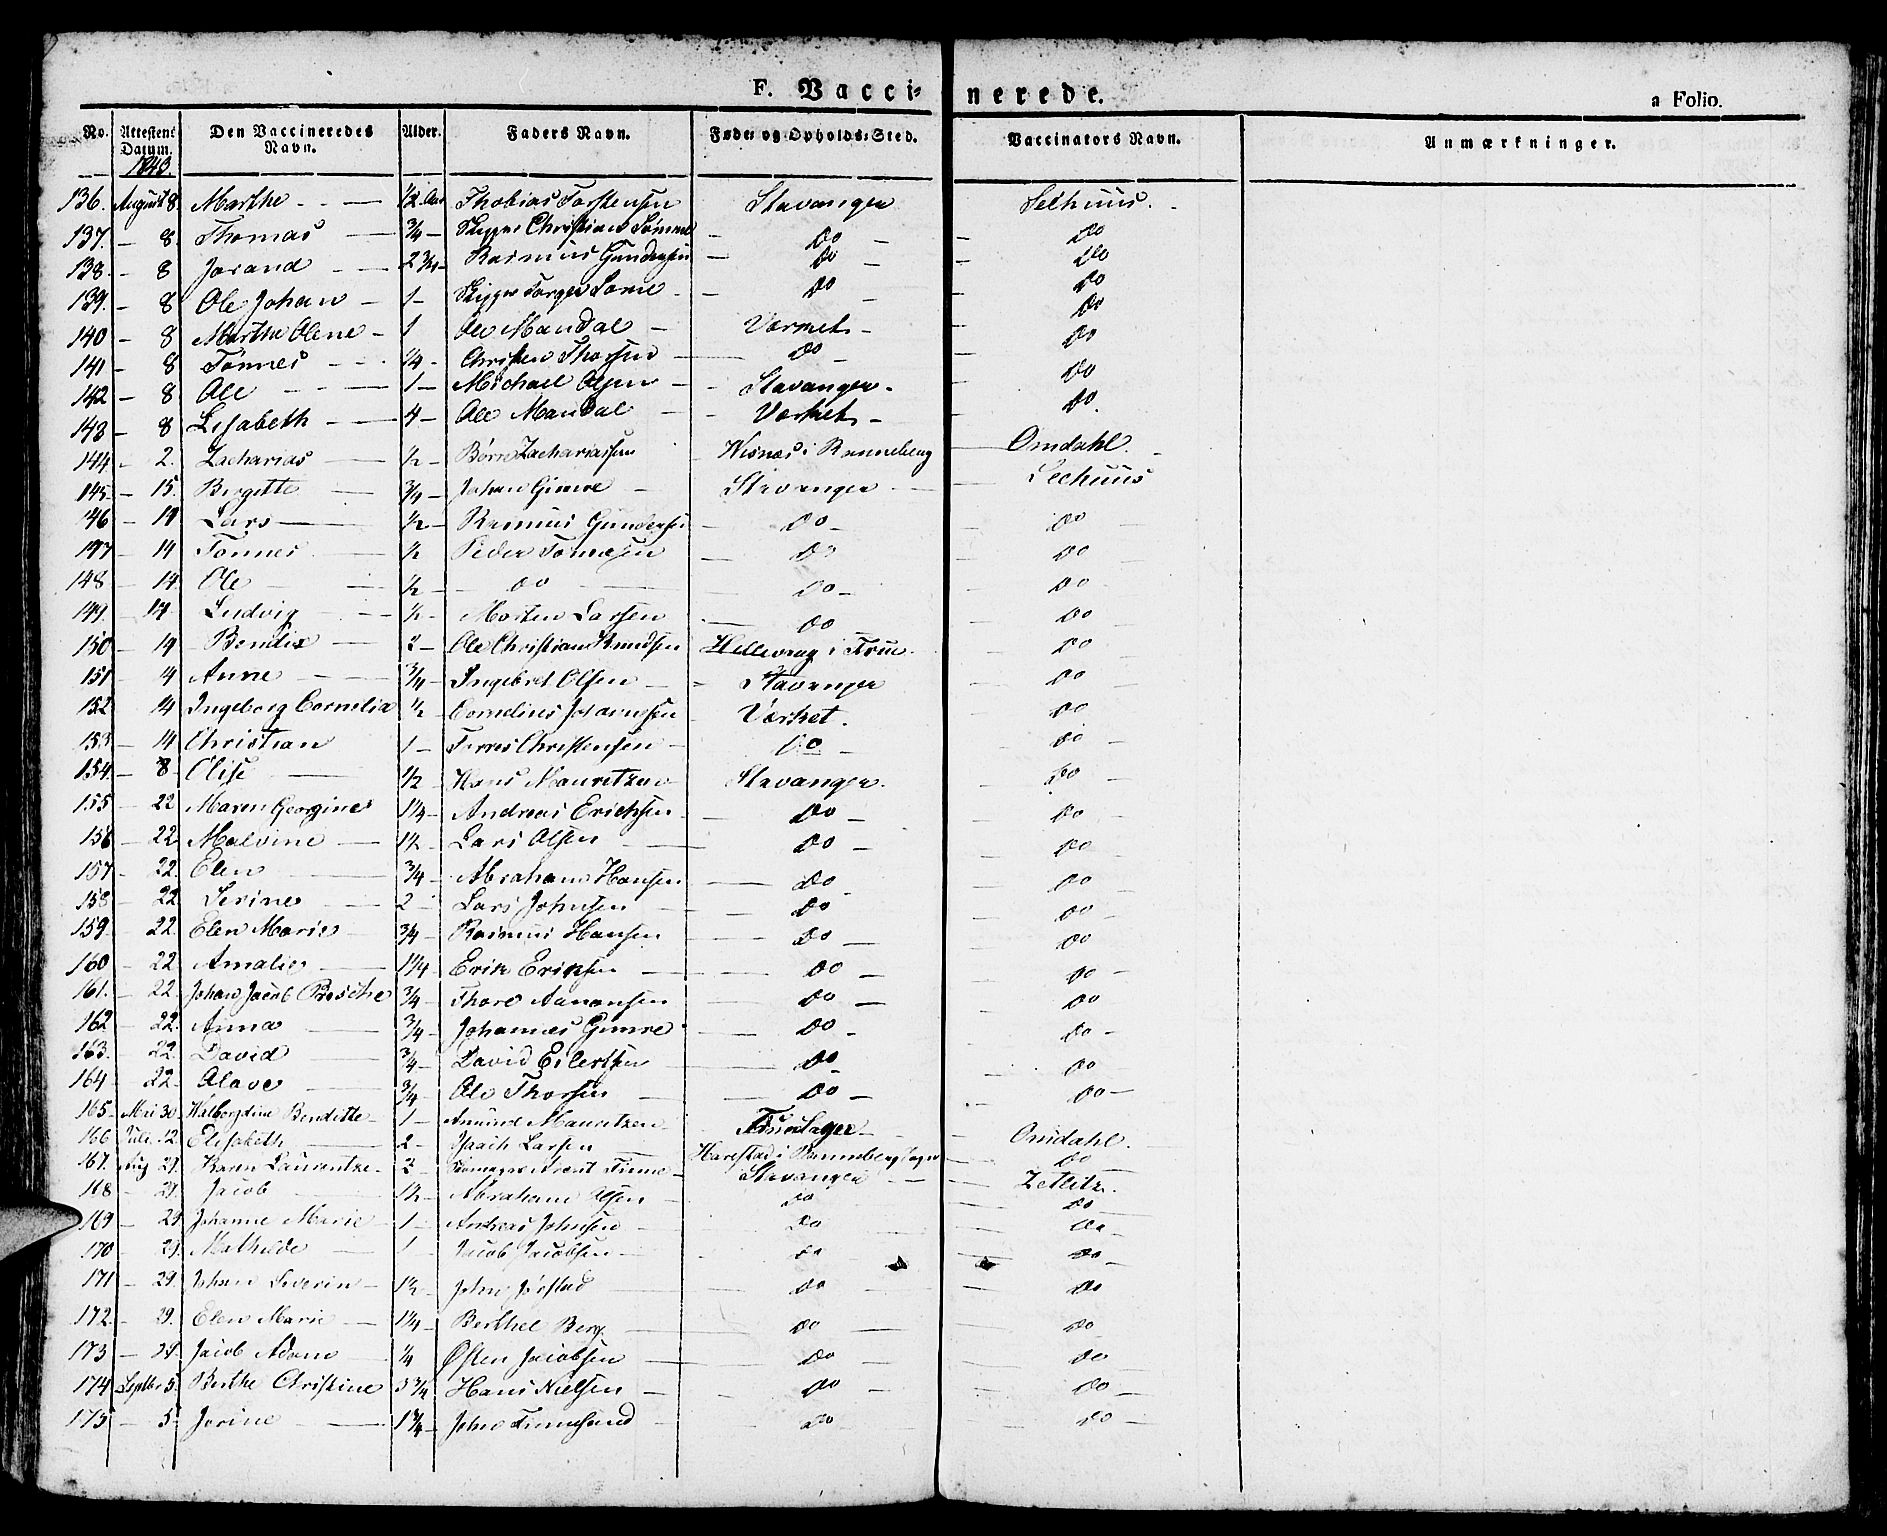 F. Vaccinerede.
a Folio.
No. Attestens Datum. Den Vaccineredes Navn. Alder. Faders Navn. Føde- og Opholds-Sted. Vaccinators Navn. Anmærkninger.
1843.
136. August 8. Marthe - - — 1/2 Aar Thobias Torstensen Stavanger Selhuus.
137. — 8. Thomas — 3/4 — Skipper Christian Sømme — Do — — Do
138 — 8 Jorand — — 2 3/4 — Rasmus Gundersen — Do — Do
139. — 8 Ole Johan — 1 — Skipper Torger — Do — Do
140 — 8 Marthe Olene — 1 Ole Mandal — Værket — — Do
141 — 8 Tønnes - - - 1/4 — Christen Thorsen — Do — — Do
142 — 8 Ole — — — 1 — Michael Olsen — - Stavanger. — Do
143 — 8 Lisabeth — — 4 — Ole Mandal — - Værket — — Do.
144 - 2. Zacharias — 1/2 — Børre Zachariassen - i Renneberg — Omdahl.
145 — 15. Birgitte — 3/4 — Johan Gimre — Stavanger — — Sechuus
146 — 14 Lars — 1/2 — Rasmus Gundersen — Do — — Do
147 — 14 Tønnes — 1/2 Peder Tønnesen — Do — Do
148 — 14 Ole — — 1/2 — do — — Do — — Do
149. — 14 Ludvig — — 1/2 — Morten Larsen — Do — Do
150 — 14 Bendix — 2 — Ole Christian Knudsen i Frue. Do
151 — 14 Anne — — 3/4 — Ingebret Olsen — - Stavanger — Do
152 — 14 Ingeborg Cornelia 1/2 — Cornelius Johannesen - Værket. — Do
153 — 14 Christian 1 — Christensen — Do — - Do —
154. — 8 Olise — 1/2 — Hans Mauritzen Stavanger. Do —
155 — 22 Maren Georgine 1 1/4 — Andreas Erichsen — Do — — Do
156 — 22 Malvine — 1 1/2 — Lars Olsen — Do — — Do
157 — 22. Elen — 3/4 — Abraham Hansen — Do — Do
158 — 22 Serine — 2 - Lars Johnsen — — Do — Do
159. — 22. Elen Marie — 3/4 — Rasmus Hansen — — Do — — Do
160 — 22 Amalie — 1 1/4 — Erik Eriksen — — Do — — Do —
161. — 22. Johan Jacob 3/4 — Thore Aanensen — Do — — Do
162 — 22. Anna — 3/4 — Johannes Gimre — Do - — Do —
163. — 22. David — 3/4 — David Eilertsen — Do - — Do
164 — 22. Olave — 3/4 Ole Thorsen — — Do — — Do —
165. Mai 30. Walborgdine Benditte — 1 — Mauritzen Omdahl.
166 Juli 12. Elisabeth — 2 — Larsen Harestad i Do
167. Aug 29. Karen Laurentze — 2 — Stavanger — Zetlitz.
168 — 29. Jacob — 1 1/2 — Abraham Olsen — Do — Do —
169 — 29. Johanne Marie — 1 — Andreas Johnsen — Do — Do —
170 — 29. Mathilde — 1 — Jacob Jacobsen — - Do — Do —
171 — 29. Johan Severin — 1 1/2 — John Jøsstad — — Do — Do
172. — 29. Elen Marie — 1 1/4 — Berthel Berg — — Do — — Do
173 — 29. Jacob Adam — 1/4 Østen Jacobsen — — Do — — Do
174 Septbr 5. Berthe Christine 5 3/4 — Hans Nielsen — — Do — — Do —
175 — 5. Jorine — 1 3/4 — John — Do — Do —